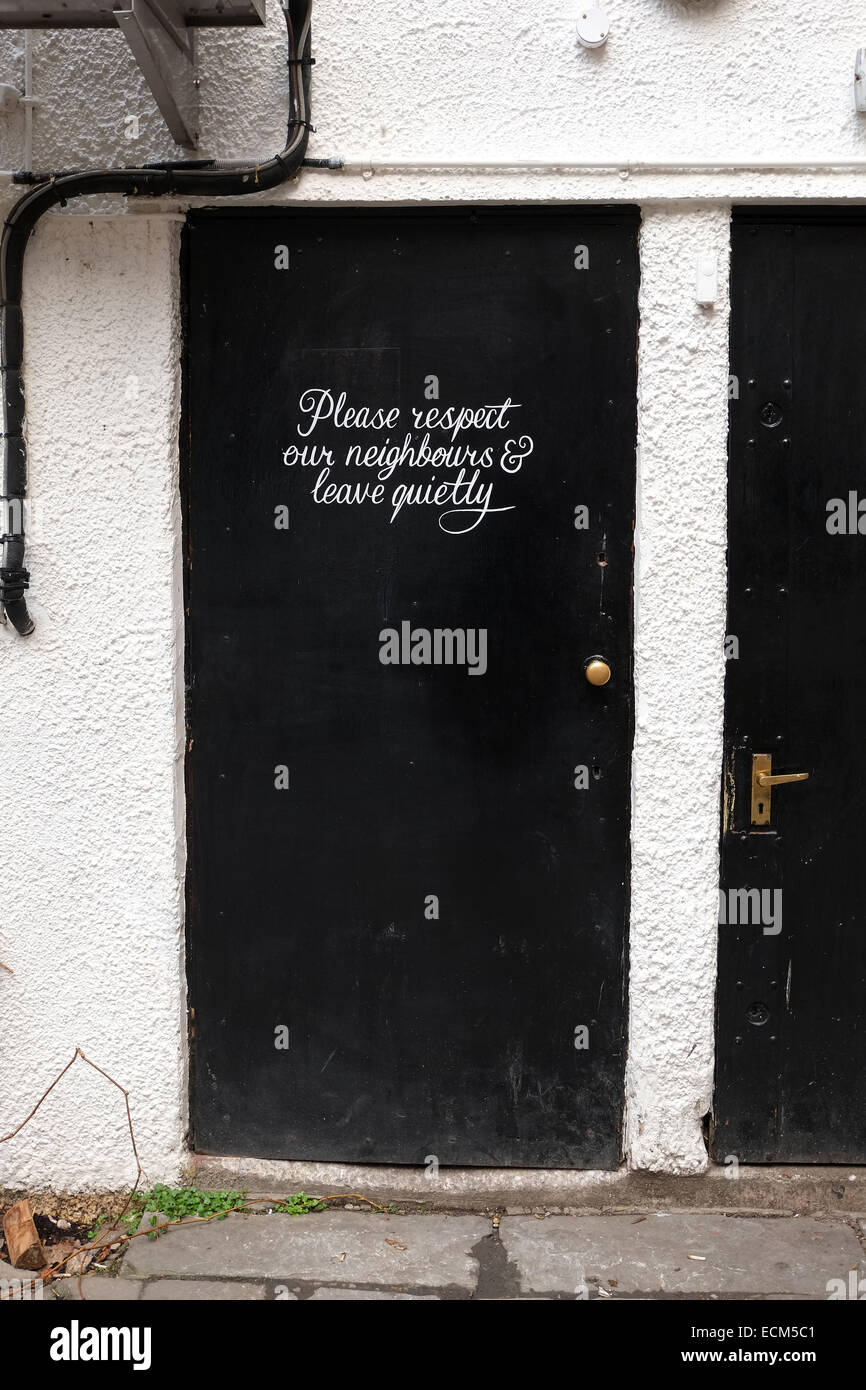 Please respect
our neighbours &
leave quietly
alamy
a
a
a
a
alamy stock photo
ECM5C1
www.alamy.com